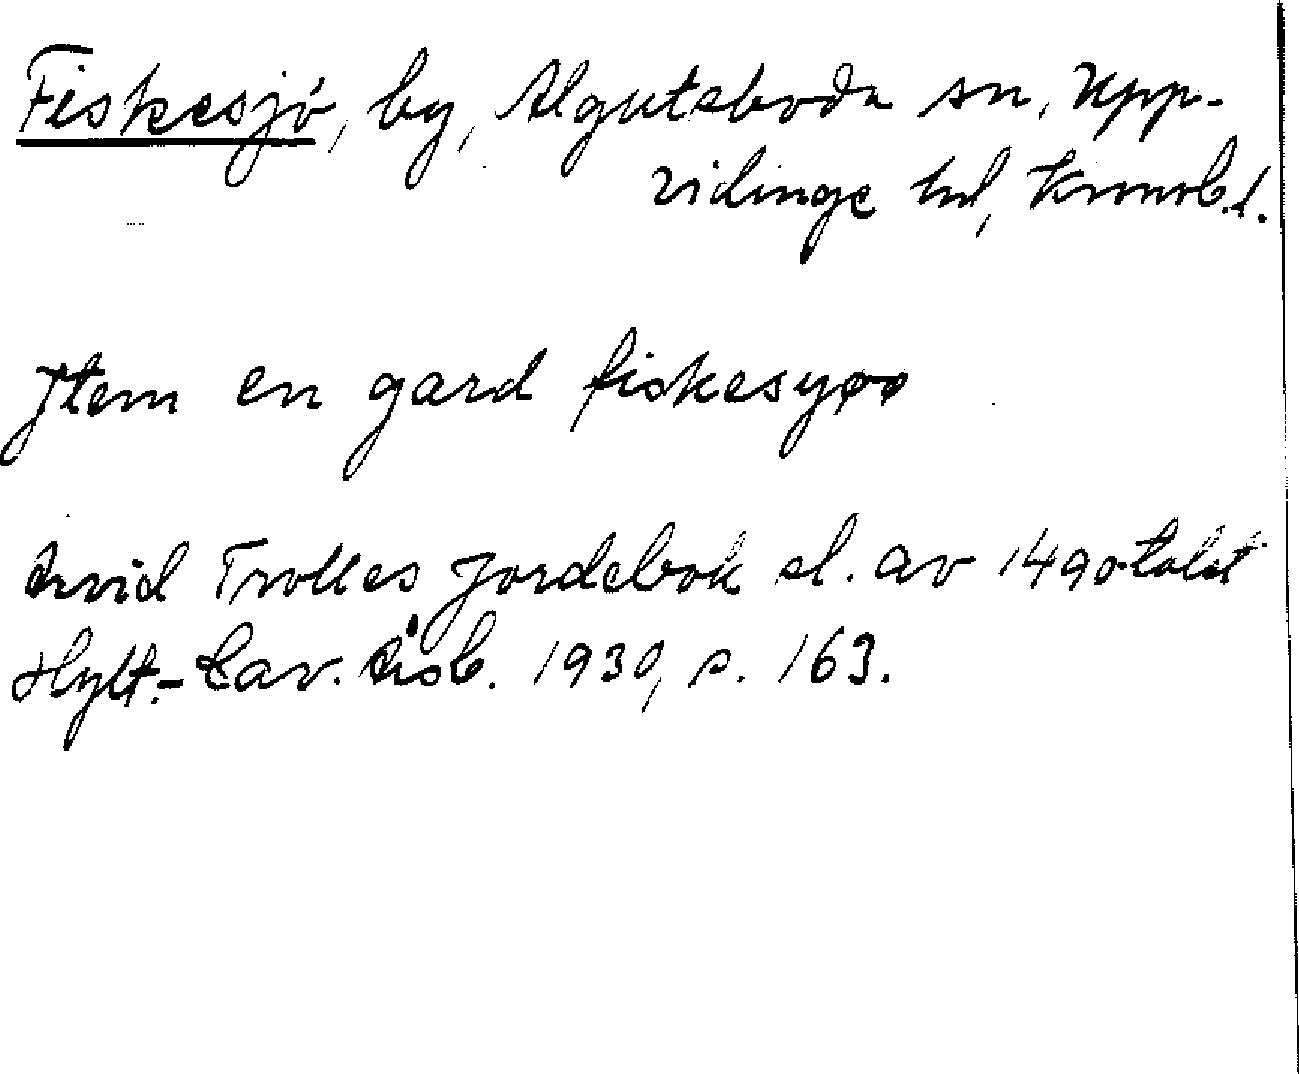 Fiskesjö, by, Algutsboda sn, Upp-
vidinge hd, Kronob.l.
Jtem en gard fiskesyøø
Arvid Trolles jordebok sl. av 1490talet
Hylt.-Cav. Årsb. 1930, s. 163.